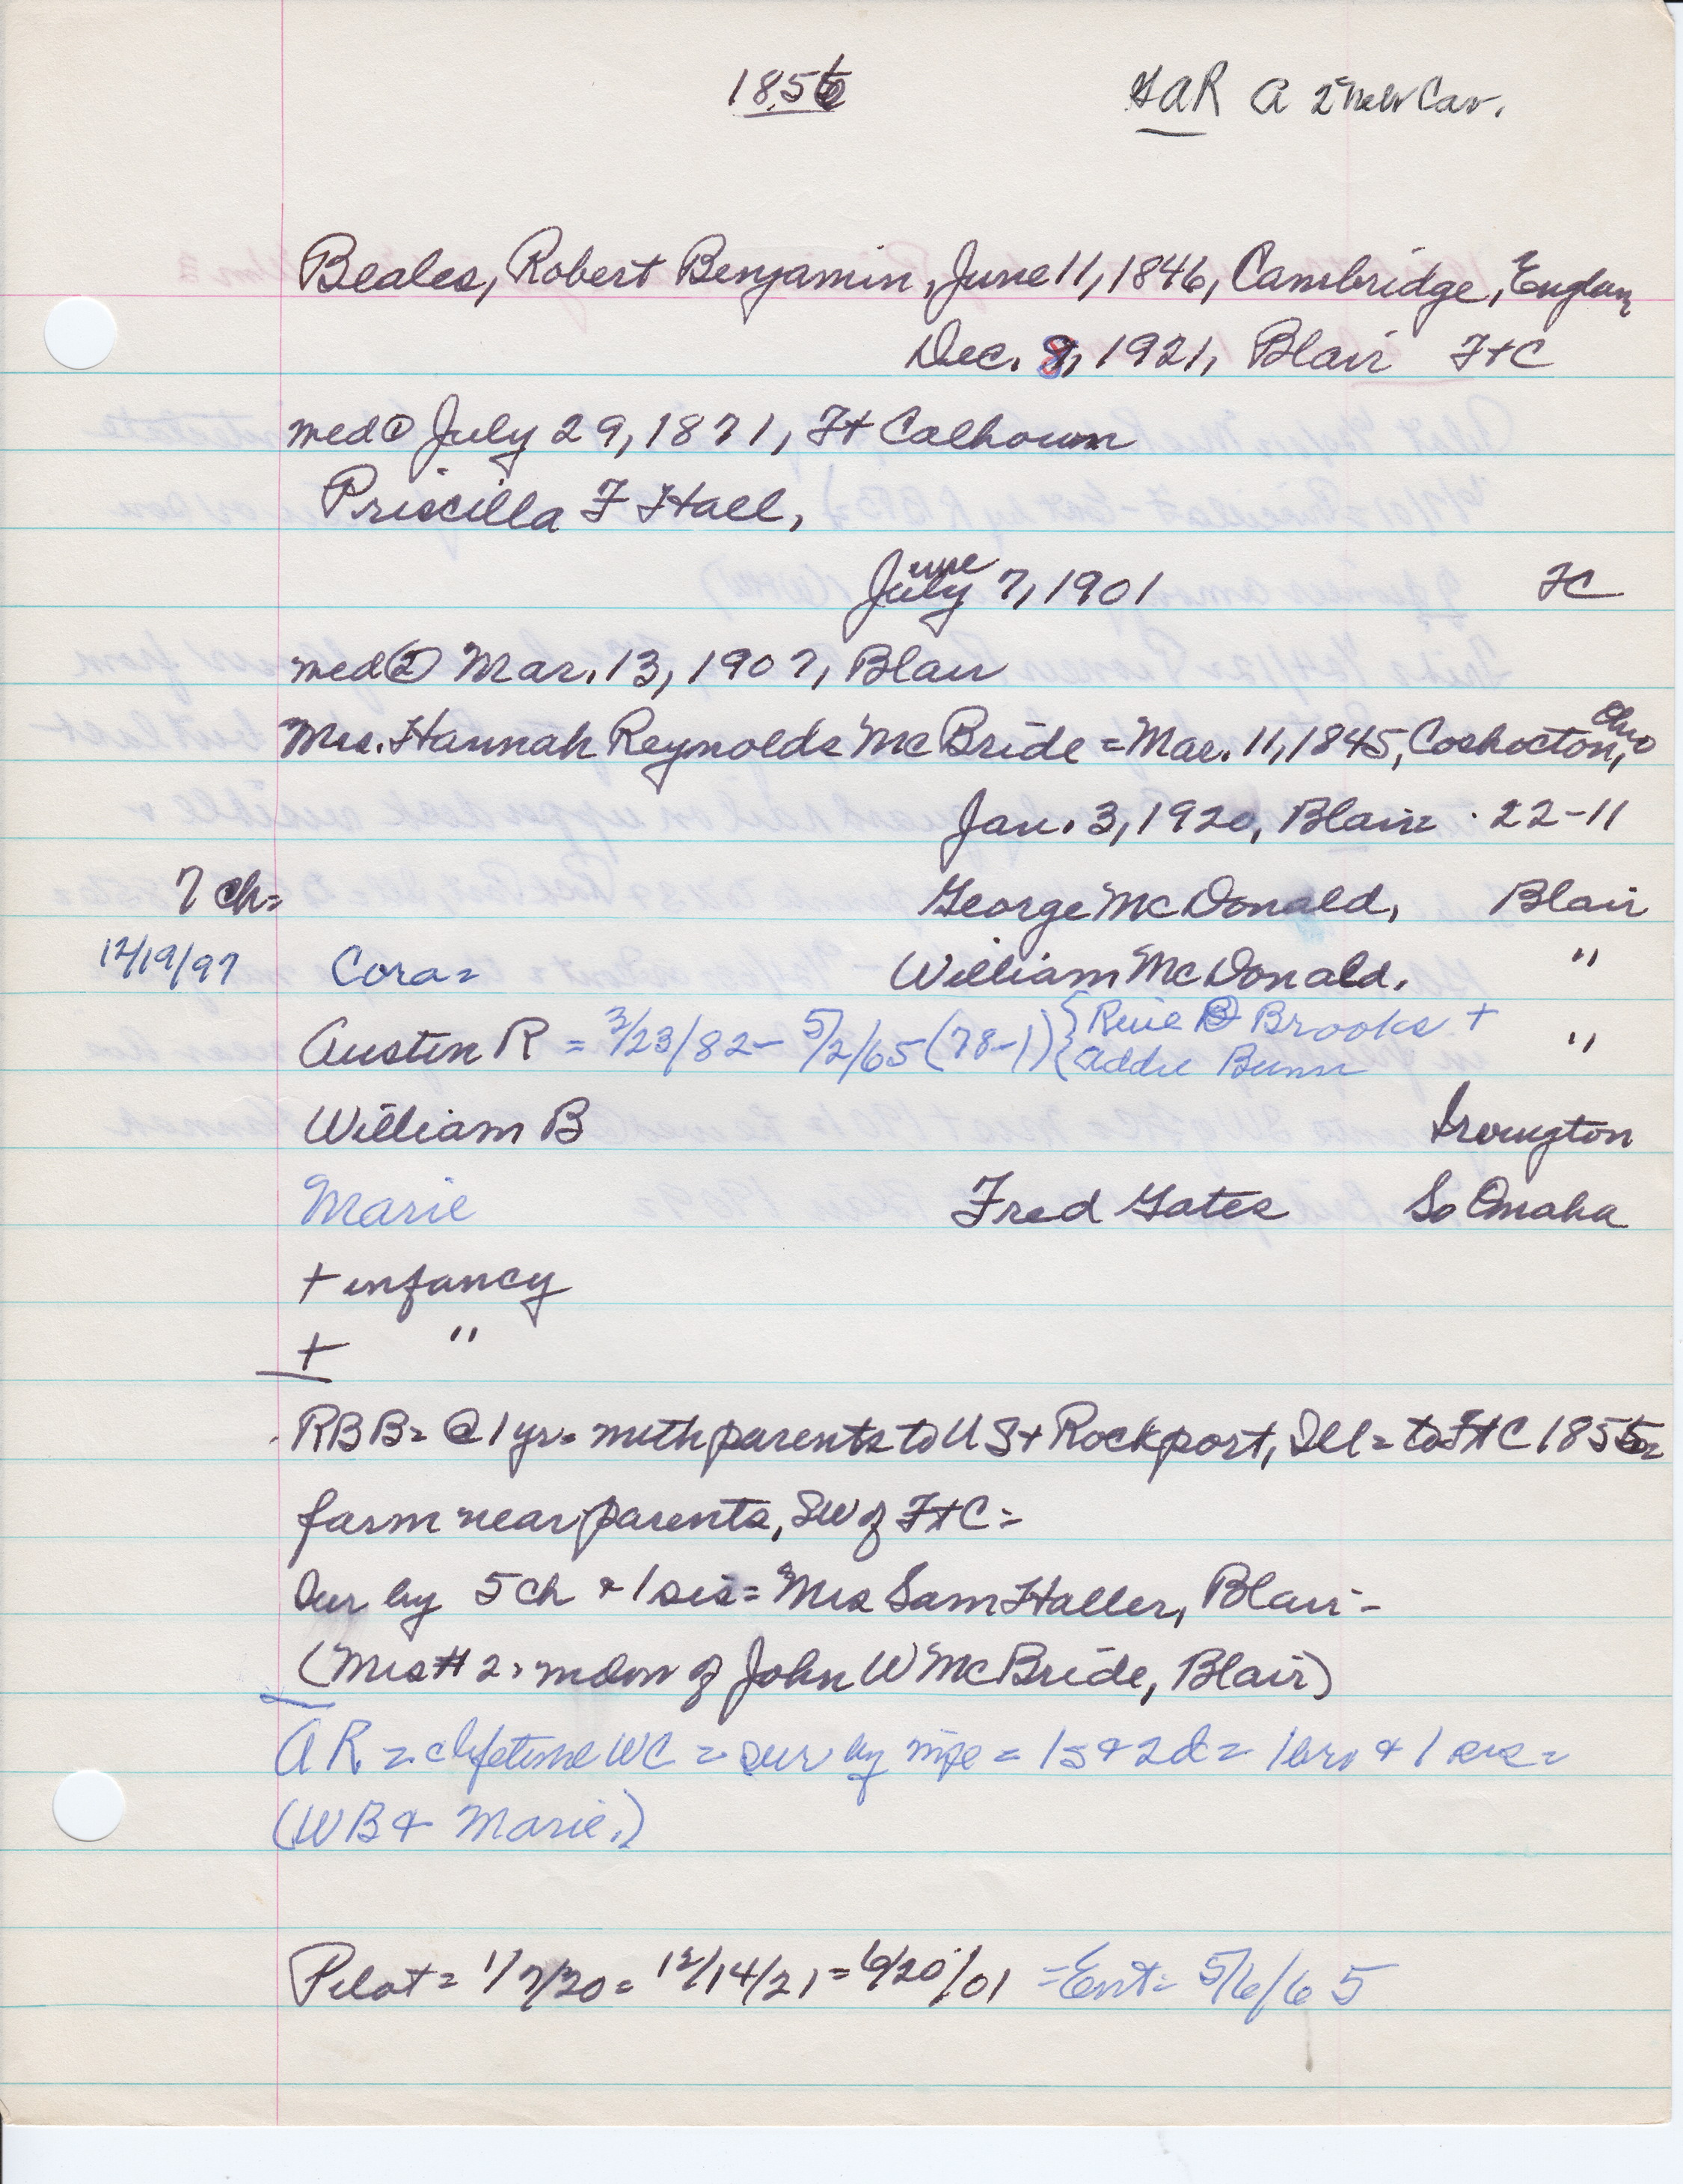 1856
GAR A 2 Neb Cav.
Beales, Robert Benjamin, June 11, 1846, Cambridge, England
Dec. 8, 1921, Blair FtC
med ① July 29, 1871, Ft Calhoun
Priscilla F Hall,
June
July 7, 1901 FC
med ② Mar. 13, 1907, Blair
Mrs. Hannah Reynolds McBride = Mar. 11, 1845, Coshocton, Ohio
Jan. 3, 1920, Blair · 22-11
7 ch= George McDonald, Blair
12/19/97 Cora = William McDonald. "
Austin R = 3/23/82 - 5/2/65 (78-1) { Brooks + "
Addie Bunn
William B Irvington
Marie Fred Gates So Omaha
+ infancy
+ "
RBB = @ 1 yr = with parents to US + Rockport, Ill = to FtC 1856
farm near parents, SW of FtC =
Sur by 5 ch & 1 sis = Mrs Sam Haller, Blair -
(Mrs # 2 = widow of John W McBride, Blair)
AR = lifetime WC = sur by wife = 1s & 2d = 1 bro & 1 sis =
(WB & Marie.)
Pilot = 1/7/20 = 12/14/21 = 6/20/01 = Ent = 5/6/65